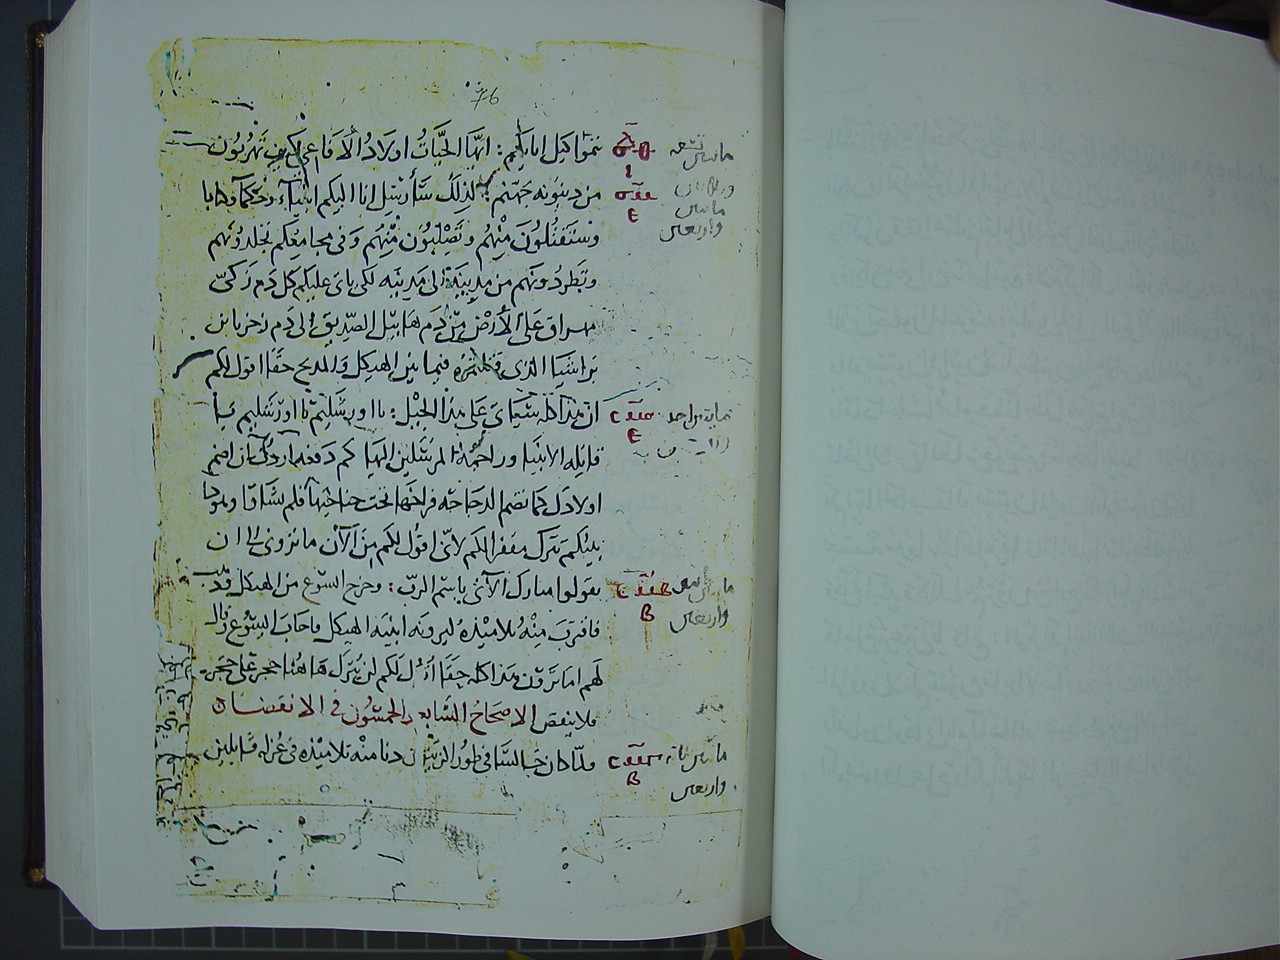 76
تموا كيل ابايكم : ايها الحيات اولاد الافاعي كيف تهربون
من دينونه جهنم : لذلك سأرسل انا اليكم انبياء وحكما وكتابا
وستقتلون منهم وتصلبون منهم وفي مجامعكم تجلدونهم
وتطردونهم من مدينة الى مدينه لكي ياتي عليكم كل دم زكي
مهراق على الارض من دم هابيل الصديق الى دم زخريا بن
براشيا الذي قتلتموه فيما بين الهيكل والمذبح حقا اقول لكم
ان هذا كله سياتي على هذا الجيل : يا اورشليم يا اورشليم يا
قاتله الانبيا وراجمة المرسلين اليها كم دفعه اردت ان اضم
اولادك كما تضم الدجاجه فراخها تحت جناحيها فلم تشاوا وهوذا
بيتكم يترك مقفرا لكم لاني اقول لكم من الآن ما تروني الى ان
تقولوا مبارك الآتي باسم الرب : وخرج ايسوع من الهيكل وذهب
فاقترب منه تلاميذه ليرونه ابنيه الهيكل فاجاب ايسوع وقال
لهم اما ترون هذا كله حقا اقول لكم لن يترك هاهنا حجر على حجر
فلا ينقض الاصحاح السابع والخمسون في الانقضاء
ولما كان جالسا في طور الزيتون دنا منه تلاميذه في عزله قايلين
مايتين تسعه
مايتين
واربعين
مايتين واحد
مايتين
واربعين
مايتين
واربعين